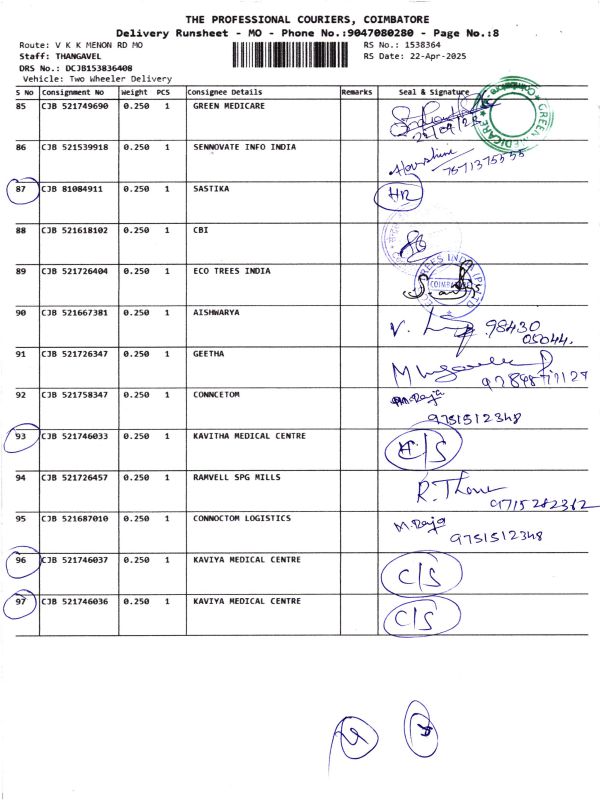 THE PROFESSIONAL COURIERS, COIMBATORE
Delivery Runsheet - MO - Phone No.:9047080280 - Page No.:8
Route: V K K MENON RD MO RS No.: 1538364
Staff: THANGAVEL RS Date: 22-Apr-2025
DRS No.: DCJB153836408
Vehicle: Two Wheeler Delivery
S No Consignment No Weight PCS Consignee Details Remarks Seal & Signature
85 CJB 521749690 0.250 1 GREEN MEDICARE
GREEN MEDICARE
86 CJB 521539918 0.250 1 SENNOVATE INFO INDIA
87 CJB 81084911 0.250 1 SASTIKA
88 CJB 521618102 0.250 1 CBI
89 CJB 521726404 0.250 1 ECO TREES INDIA
90 CJB 521667381 0.250 1 AISHWARYA
98430
05044.
91 CJB 521726347 0.250 1 GEETHA
92 CJB 521758347 0.250 1 CONNCETOM
M.Raja
9751512348
93 CJB 521746033 0.250 1 KAVITHA MEDICAL CENTRE C/S
94 CJB 521726457 0.250 1 RAMVELL SPG MILLS
9715282362
95 CJB 521687010 0.250 1 CONNOCTOM LOGISTICS M.Raja
9751512348
96 CJB 521746037 0.250 1 KAVIYA MEDICAL CENTRE C/S
97 CJB 521746036 0.250 1 KAVIYA MEDICAL CENTRE C/S